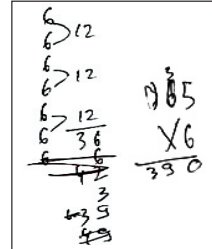 6
6 > 12
6
6 > 12
6
6 > 12
36
6 6
42
3
39
49
3
65
X6
390